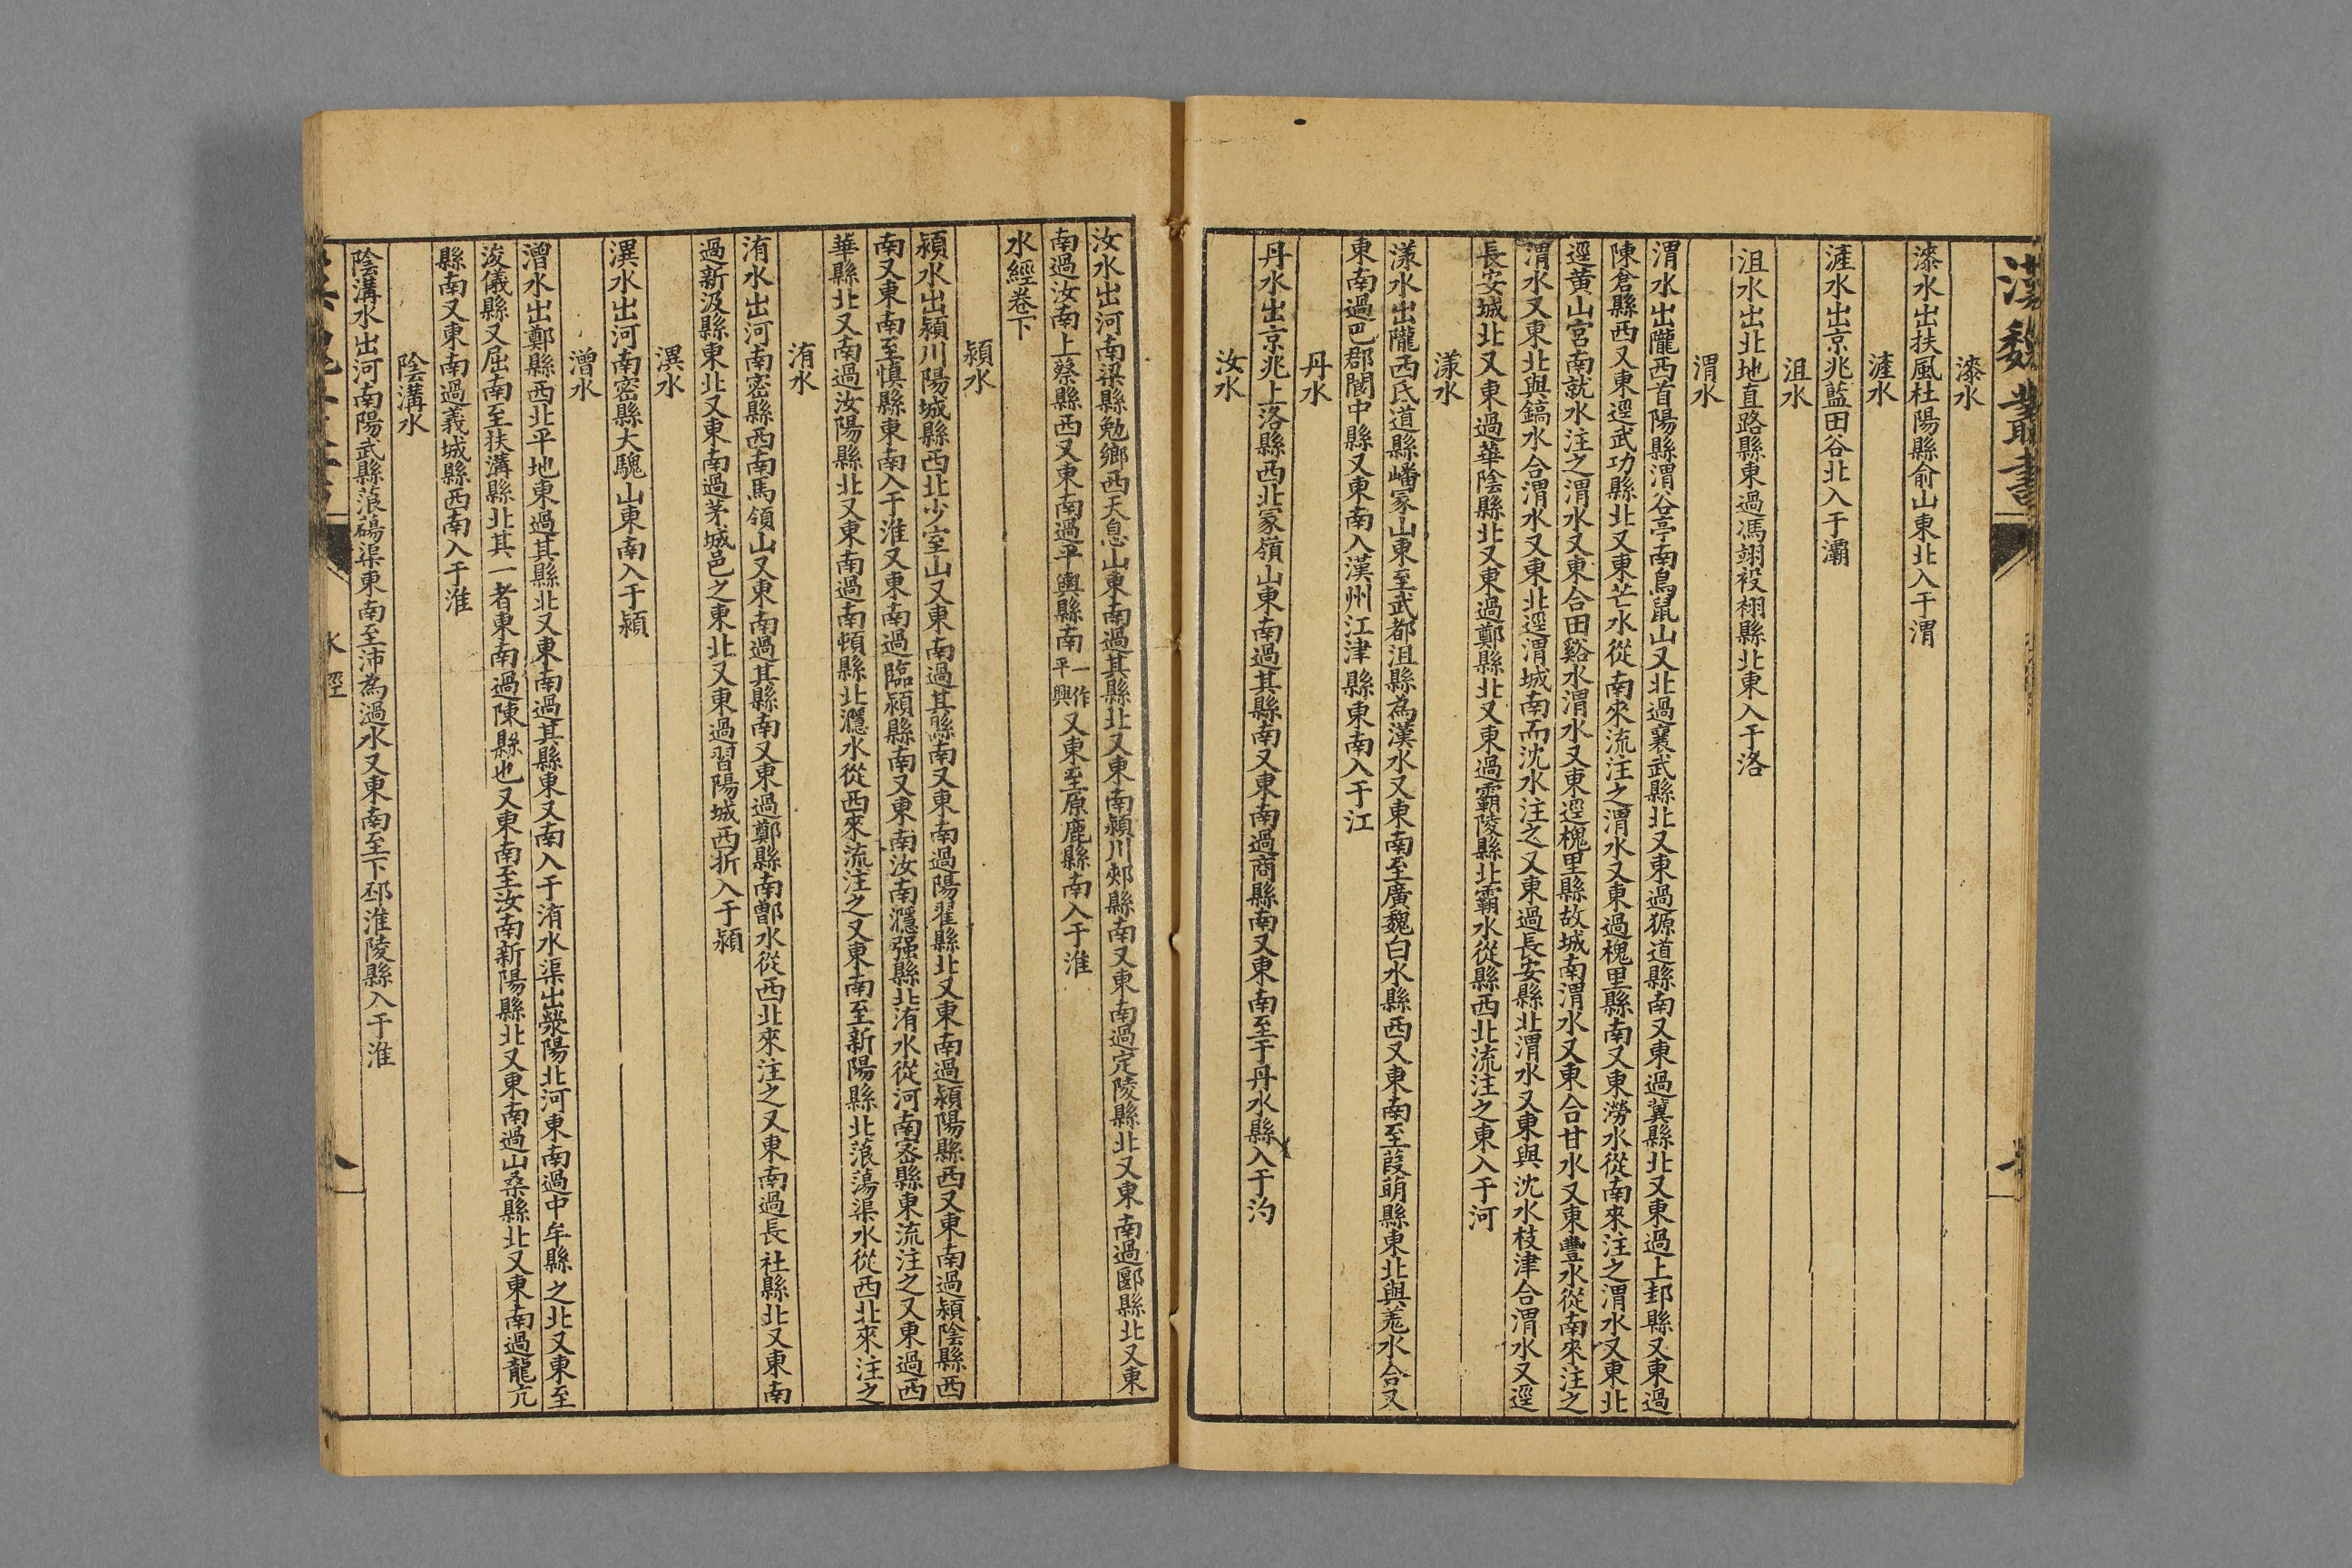 漢魏叢書
漆水
漆水出扶風杜陽縣俞山東北入于渭
滻水
滻水出京兆藍田谷北入于灞
沮水
沮水出北地直路縣東過馮翊祋栩縣北東入于洛
渭水
渭水出隴西首陽縣渭谷亭南鳥鼠山又北過襄武縣北又東過獂道縣南又東過冀縣北又東過上邽縣又東過
陳倉縣西又東逕武功縣北又東芒水從南來流注之渭水又東過槐里縣南又東澇水從南來注之渭水又東北
逕黃山宮南就水注之渭水又東合田谿水渭水又東逕槐里縣故城南渭水又東合甘水又東豐水從南來注之
渭水又東北與鎬水合渭水又東北逕渭城南而沈水注之又東過長安縣北渭水又東與沈水枝津合渭水又逕
長安城北又東過華陰縣北又東過鄭縣北又東過霸陵縣北霸水從縣西北流注之東入于河
漾水
漾水出隴西氐道縣嶓冢山東至武都沮縣為漢水又東南至廣魏白水縣西又東南至葭萌縣東北與羗水合又
東南過巴郡閬中縣又東南入漢州江津縣東南入于江
丹水
丹水出京兆上洛縣西北冢嶺山東南過其縣南又東南過商縣南又東南至于丹水縣入于汋
汝水
汝水出河南梁縣勉鄉西天息山東南過其縣北又東南潁川郟縣南又東南過定陵縣北又東南過郾縣北又東
南過汝南上蔡縣西又東南過平輿縣南一作平興又東至原鹿縣南入于淮
水經卷下
潁水
潁水出潁川陽城縣西北少室山又東南過其縣南又東南過陽翟縣北又東南過潁陽縣西又東南過潁陰縣西
南又東南至慎縣東南入于淮又東南過臨潁縣南又東南汝南濦强縣北洧水從河南密縣東流注之又東過西
華縣北又南過汝陽縣北又東南過南頓縣北濦水從西來流注之又東南至新陽縣北蒗蕩渠水從西北來注之
洧水
洧水出河南密縣西南馬領山又東南過其縣南又東過鄭縣南鄫水從西北來注之又東南過長社縣北又東南
過新汲縣東北又東南過茅城邑之東北又東過習陽城西折入于潁
潩水
潩水出河南密縣大騩山東南入于潁
潧水
潧水出鄭縣西北平地東過其縣北又東南過其縣東又南入于洧水渠出滎陽北河東南過中牟縣之北又東至
浚儀縣又屈南至扶溝縣北其一者東南過陳縣也又東南至汝南新陽縣北又東南過山桑縣北又東南過龍亢
縣南又東南過義城縣西南入于淮
陰溝水
陰溝水出河南陽武縣蒗蕩渠東南至沛為過水又東南至下邳淮陵縣入于淮
水經
八